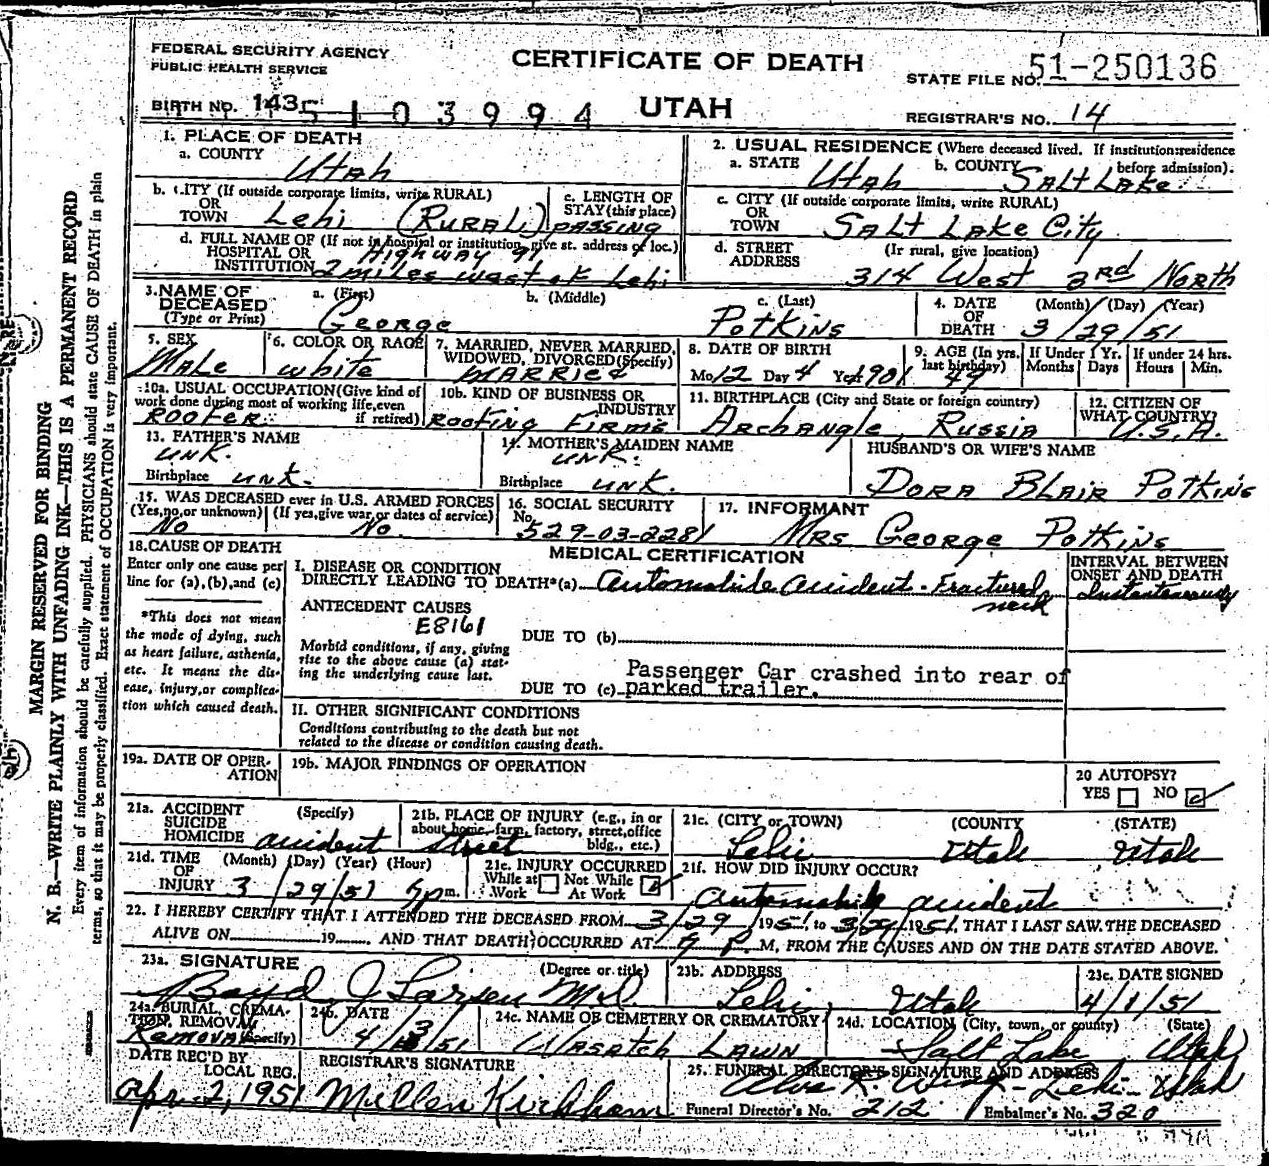 FEDERAL SECURITY AGENCY
PUBLIC HEALTH SERVICE
CERTIFICATE OF DEATH
STATE FILE NO. 51-250136
BIRTH NO. 143 5103994
UTAH
REGISTRAR'S NO. 14
1. PLACE OF DEATH
a. COUNTY Utah
2. USUAL RESIDENCE (Where deceased lived. If institution: residence before admission).
a. STATE Utah b. COUNTY Salt Lake
b. CITY (If outside corporate limits, write RURAL) OR TOWN Lehi (Rural)
c. LENGTH OF STAY (this place) passing
c. CITY (If outside corporate limits, write RURAL) OR TOWN Salt Lake City
d. FULL NAME OF (If not in hospital or institution, give st. address or loc.) HOSPITAL OR INSTITUTION Highway 91 2 miles west of Lehi
d. STREET ADDRESS (If rural, give location) 314 West 3rd North
3. NAME OF DECEASED (Type or Print) a. (First) George b. (Middle) c. (Last) Potkins
4. DATE OF DEATH (Month) (Day) (Year) 3/29/51
5. SEX Male
6. COLOR OR RACE White
7. MARRIED, NEVER MARRIED, WIDOWED, DIVORCED (Specify) Married
8. DATE OF BIRTH Mo 12 Day 4 Year 1901
9. AGE (In yrs. last birthday) 49
If Under 1 Yr. Months Days
If under 24 hrs. Hours Min.
10a. USUAL OCCUPATION (Give kind of work done during most of working life, even if retired) Roofer
10b. KIND OF BUSINESS OR INDUSTRY Roofing Firms
11. BIRTHPLACE (City and State or foreign country) Archangle, Russia
12. CITIZEN OF WHAT COUNTRY? U.S.A.
13. FATHER'S NAME Unk.
Birthplace Unk.
14. MOTHER'S MAIDEN NAME Unk.
Birthplace Unk.
HUSBAND'S OR WIFE'S NAME
Dora Blair Potkins
15. WAS DECEASED ever in U.S. ARMED FORCES
(Yes, no, or unknown) (If yes, give war, or dates of service) No No.
16. SOCIAL SECURITY No. 529-03-2281
17. INFORMANT Mrs George Potkins
MEDICAL CERTIFICATION
18. CAUSE OF DEATH
Enter only one cause per line for (a), (b), and (c)
*This does not mean the mode of dying, such as heart failure, asthenia, etc. It means the disease, injury, or complication which caused death.
I. DISEASE OR CONDITION DIRECTLY LEADING TO DEATH*(a) Automobile accident - Fractured neck
INTERVAL BETWEEN ONSET AND DEATH Instantaneously
ANTECEDENT CAUSES
E8161
Morbid conditions, if any, giving rise to the above cause (a) stating the underlying cause last.
DUE TO (b)
DUE TO (c) Passenger Car crashed into rear of parked trailer.
II. OTHER SIGNIFICANT CONDITIONS
Conditions contributing to the death but not related to the disease or condition causing death.
19a. DATE OF OPERATION
19b. MAJOR FINDINGS OF OPERATION
20 AUTOPSY? YES NO
21a. ACCIDENT SUICIDE HOMICIDE (Specify) accident
21b. PLACE OF INJURY (e.g., in or about home, farm, factory, street, office bldg., etc.) street
21c. (CITY or TOWN) (COUNTY) (STATE)
Lehi Utah Utah
21d. TIME OF INJURY (Month) (Day) (Year) (Hour) 3/29/51 9 p m.
21e. INJURY OCCURRED While at Work Not While At Work
21f. HOW DID INJURY OCCUR? Automobile accident
22. I HEREBY CERTIFY THAT I ATTENDED THE DECEASED FROM 3/29 1951, to 3/29 1951, THAT I LAST SAW THE DECEASED
ALIVE ON 19 , AND THAT DEATH OCCURRED AT 9 P M, FROM THE CAUSES AND ON THE DATE STATED ABOVE.
23a. SIGNATURE (Degree or title) Boyd J Larsen M.D.
23b. ADDRESS Lehi, Utah
23c. DATE SIGNED 4/1/51
24a. BURIAL, CREMATION, REMOVAL (Specify) Removal
24b. DATE 4/3/51
24c. NAME OF CEMETERY OR CREMATORY Wasatch Lawn
24d. LOCATION (City, town, or county) (State) Salt Lake, Utah
DATE REC'D BY LOCAL REG. Apr. 2, 1951
REGISTRAR'S SIGNATURE Millen Kirkham
25. FUNERAL DIRECTOR'S SIGNATURE AND ADDRESS Alva R. Wing - Lehi - Utah
Funeral Director's No. 212 Embalmer's No. 320
MARGIN RESERVED FOR BINDING
N. B.—WRITE PLAINLY WITH UNFADING INK—THIS IS A PERMANENT RECORD
Every item of information should be carefully supplied. PHYSICIANS should state CAUSE OF DEATH in plain
terms, so that it may be properly classified. Exact statement of OCCUPATION is very important.